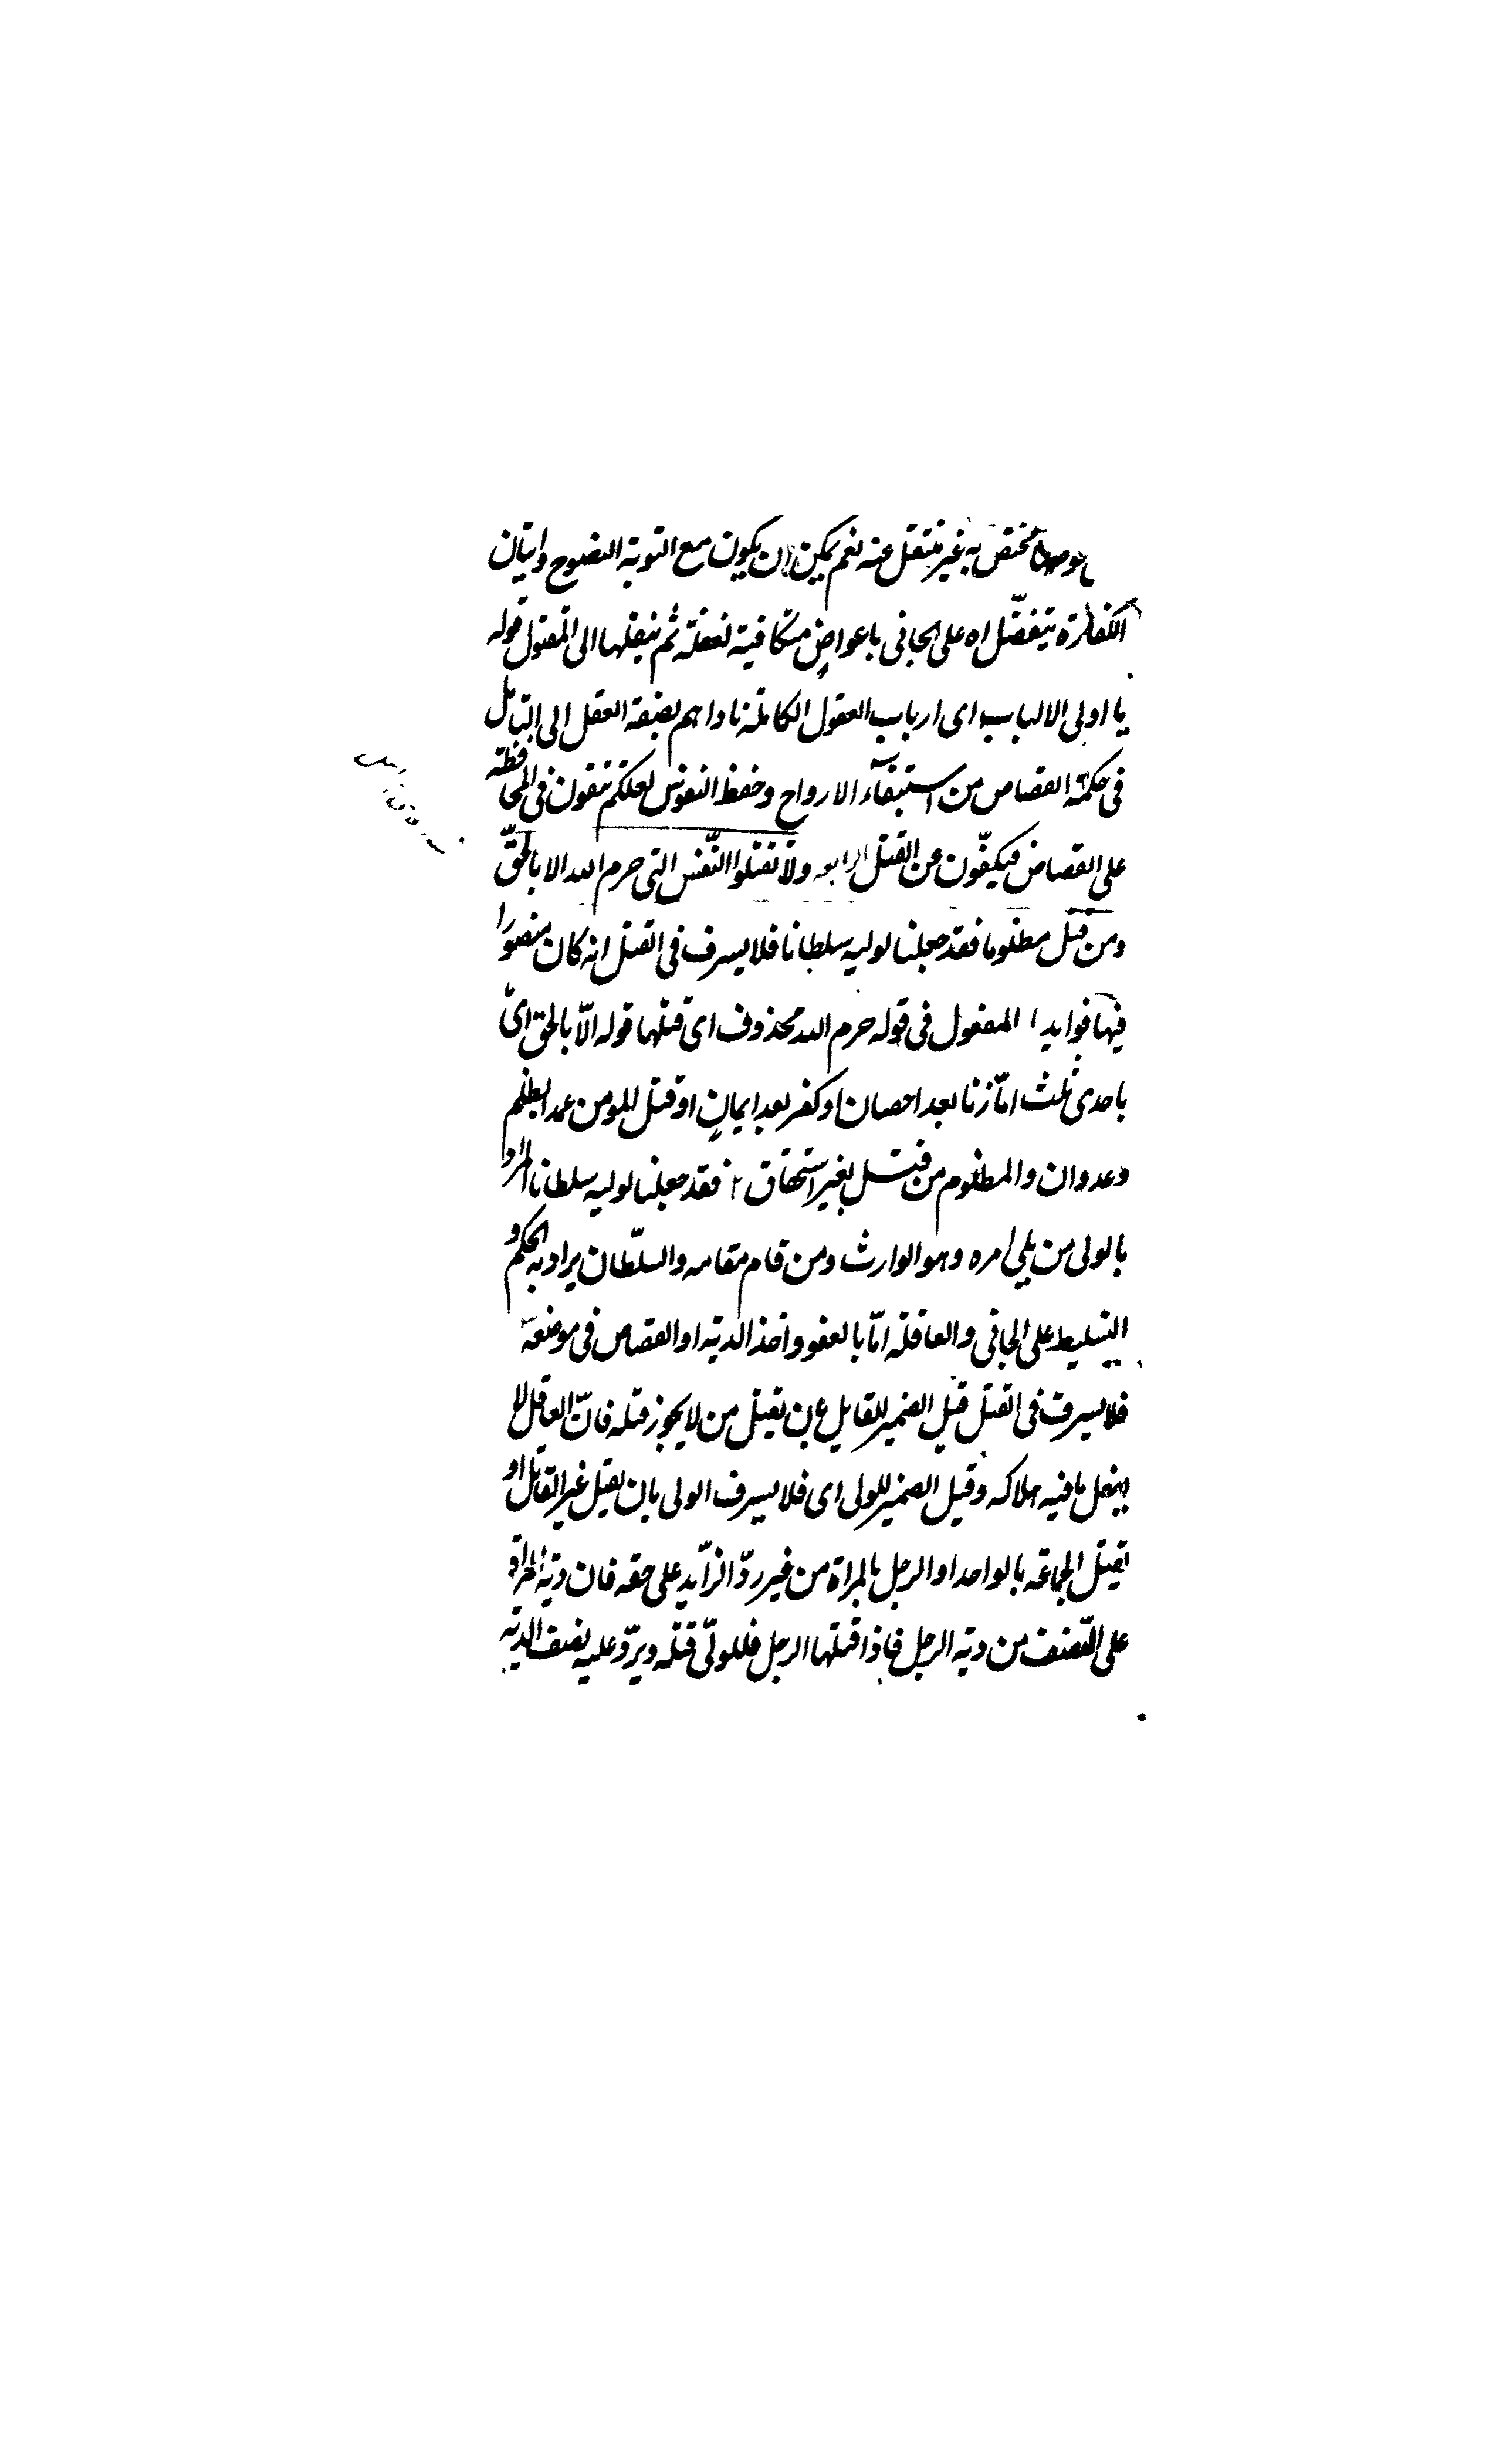 مختص به غير منتقل عنه نعم يمكن ان يكون مع التوبة النضوح واتيان
الكفارة يتفضّل اه على الجانى باعواضٍ متكافية لفعله ثم ينقلها الى المقتول قوله
يا اولى الالباب اى ارباب العقول الكاملة ناداهم بصفة العقل الى التامل
فى حكمة القصاص من استبقآء الارواح وحفظ النفوس لعلكم تتقون فى المحافظة
على القصاص فيكفّون عن القتل الرابعه ولا تقتلوا النّفس التى حرم الله الا بالحقّ
ومن قتل مظلوما فقد جعلنا لوليه سلطانا فلا يسرف فى القتل انه كان منصورا
فيها فوايد ا المفعول فى قوله حرم الله محذوف اى قتلها قوله الّا بالحق اى
باحدى ثلث امّا زنا بعد احصان او كفر بعد ايمانٍ او قتل المومن عمدا بظلم
وعدوان والمظلوم من قتل بغير استحقاق ٢ فقد جعلنا لوليه سلطانا المراد
بالولى من يلى امره وهو الوارث ومن قام مقامه والسلّطان يراد به الحكم و
التسليط على الجانى والعاقلة امّا بالعفو واخذ الدية او القصاص فى موضعه
فلا يسرف فى القتل قيل الضمير للقايل بان يقتل من لا يجوز قتله فانّ العاقل لا
يفعل ما فيه هلاكه وقيل الضمير للولى اى فلا يسرف الولى بان يقتل غير القاتل او
يقتل الجماعة بالواحد او الرجل بالمراة من غير ردّ الزّايد على حقه فان دية المراة
على النّصف من دية الرجل فاذا قتلها الرجل فللولّى قتله ويردّ عليه نصف الدية